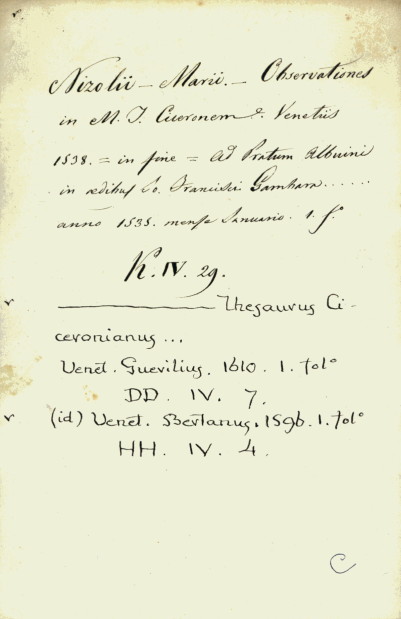 Nizolii - Marii. - Observationes
in M. T. Ciceronem &. Venetiis
1538. = in fine = Ad Pratum Albuini
in ædibus Jo. Francisci Gambara......
anno 1535. mense Januario. 1. f.º
K. IV. 29.
v ———— Thesaurus Ci-
ceronianus...
Venet. Guerilius. 1610. 1. folº
DD. IV. 7.
v (id) Venet. Bertanus. 1596. 1. folº
HH. IV. 4.
C